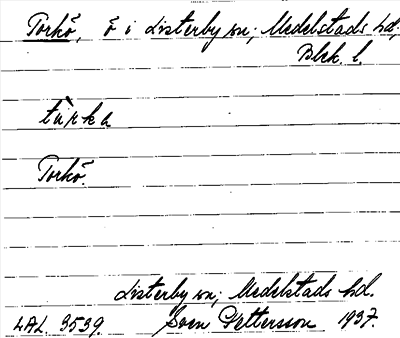 Torkö, ö i Listerby sn; Medelstads hd,
Blek. l.
tùrka
Torkö.
Listerby sn; Medelstads hd.
LAL. 3539. Sven Pettersson 1937.